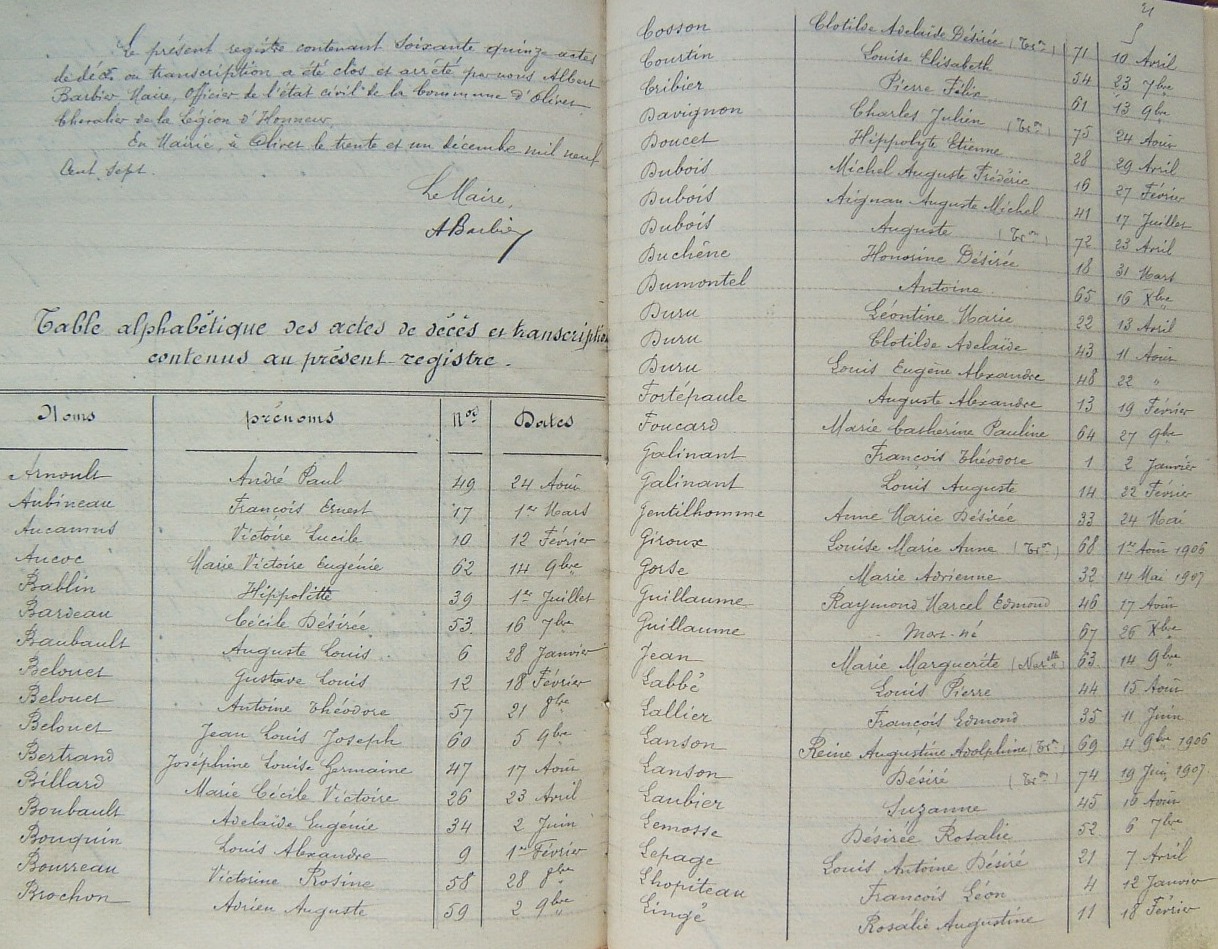 Le présent registre contenant soixante quinze actes
de décès ou transcription a été clos et arrêté par nous Albert
Barbier Maire, Officier de l'état civil de la Commune d'Olivet
Chevalier de la Légion d'Honneur
En Mairie, à Olivet le trente et un décembre mil neuf
Cent sept.
Le Maire,
ABarbier
Table alphabétique des actes de décès et transcription
contenus au présent registre.
Noms prénoms Nos Dates
Arnoult André Paul 49 24 Août
Aubineau François Ernest 17 1er Mars
Aucamus Victoire Lucile 10 12 Février
Aucoc Marie Victoire Eugénie 62 14 9bre
Bablin Hippolitte 39 1er Juillet
Bardeau Cécile Désirée 53 16 7bre
Baubault Auguste Louis 6 28 Janvier
Belouet Gustave Louis 12 18 Février
Belouet Antoine Théodore 57 21 8bre
Belouet Jean Louis Joseph 60 5 9bre
Bertrand Joséphine Louise Germaine 47 17 Août
Billard Marie Cécile Victoire 26 23 Avril
Boubault Adelaïde Eugénie 34 2 Juin
Bouquin Louis Alexandre 9 1er Février
Bourreau Victorine Rosine 58 28 8bre
Brochon Adrien Auguste 59 2 9bre
Cosson Clotilde Adelaïde Désirée (Tron) 71 10 Avril
Courtin Louise Elisabeth 54 23 7bre
Cribier Pierre Félix 61 13 9bre
Davignon Charles Julien (Tron) 75 24 Août
Doucet Hippolyte Etienne 28 29 Avril
Dubois Michel Auguste Frédéric 16 27 Février
Dubois Aignan Auguste Michel 41 17 Juillet
Dubois Auguste (Tron) 72 23 Avril
Duchêne Honorine Désirée 18 31 Mars
Dumontel Antoine 65 16 Xbre
Duru Léontine Marie 22 13 Avril
Duru Clotilde Adelaïde 43 11 Août
Duru Louis Eugène Alexandre 48 22 "
Fortépaule Auguste Alexandre 13 19 Février
Foucard Marie Catherine Pauline 64 27 9bre
Galinant François Théodore 1 2 Janvier
Galinant Louis Auguste 14 22 Février
Gentilhomme Anne Marie Désirée 33 24 Mai
Giroux Louise Marie Anne (Tron) 68 1er Août 1906
Gorse Marie Adrienne 32 14 Mai 1907
Guillaume Raymond Marcel Edmond 46 17 Août
Guillaume Mort-né 67 26 Xbre
Jean Marie Marguerite (Narelle) 63 14 9bre
Labbé Louis Pierre 44 15 Août
Lallier François Edmond 35 11 Juin
Lanson Reine Augustine Adolphine (Tron) 69 4 9bre 1906
Lanson Désiré (Tron) 74 19 Juin 1907.
Laubier Suzanne 45 16 Août
Lemosse Désirée Rosalie 52 6 7bre
Lepage Louis Antoine Désiré 21 7 Avril
Lhopiteau François Léon 4 12 Janvier
Lingé Rosalie Augustine 11 18 Février